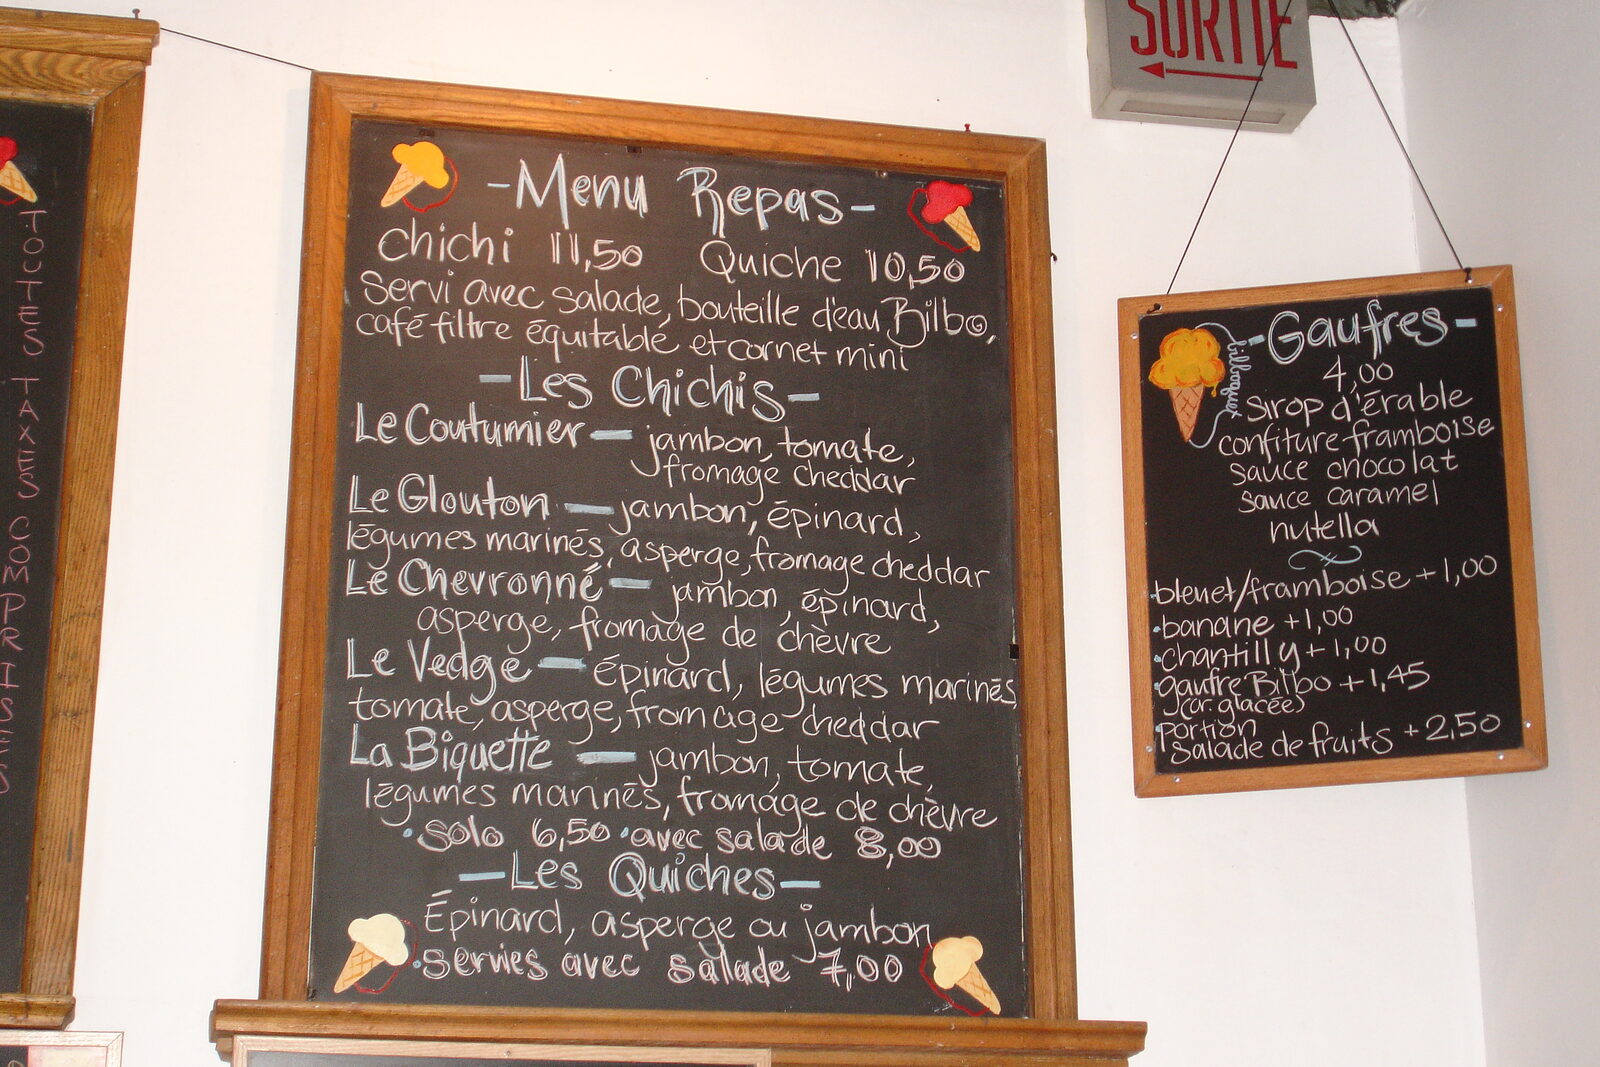 TOUTES TAXES COMPRISES
- Menu Repas -
Chichi 11,50 Quiche 10,50
Servi avec salade, bouteille d'eau Bilbo,
café filtre équitable et cornet mini
- Les Chichis -
Le Coutumier - jambon, tomate,
fromage cheddar
Le Glouton - jambon, épinard,
légumes marinés, asperge, fromage cheddar
Le Chevronné - jambon, épinard,
asperge, fromage de chèvre
Le Vedge - épinard, légumes marinés
tomate, asperge, fromage cheddar
La Biquette - jambon, tomate,
légumes marinés, fromage de chèvre
• solo 6,50 • avec salade 8,00
- Les Quiches -
Épinard, asperge ou jambon
• servies avec salade 7,00
SORTIE
- Gaufres -
bilboquet
4,00
sirop d'érable
confiture framboise
sauce chocolat
sauce caramel
nutella
• bleuet/framboise +1,00
• banane +1,00
• chantilly +1,00
• gaufre Bilbo +1,45
(cr. glacée)
• portion
salade de fruits +2,50